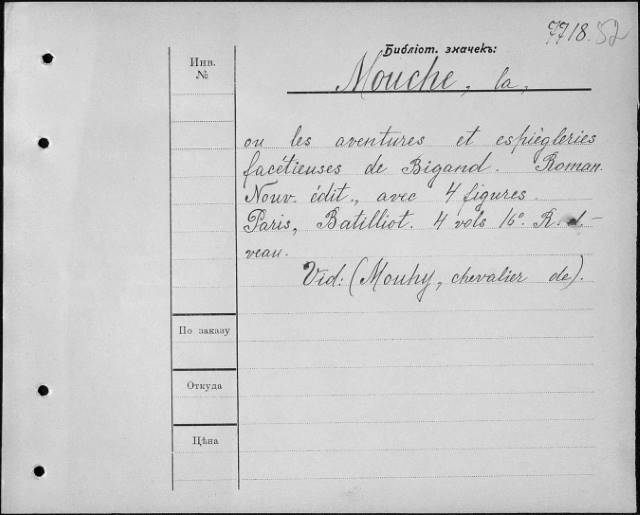 7718. 52
Библіот. значекъ:
Mouche, la,
Инв.
№
ou les aventures et espiègleries
facétieuses de Bigand. Roman.
Nouv. édit., avec 4 figures.
Paris, Batilliot. 4 vols 16°. R. d.-
veau.
Vid: (Mouhy, chevalier de).
По заказу
Откуда
Цѣна